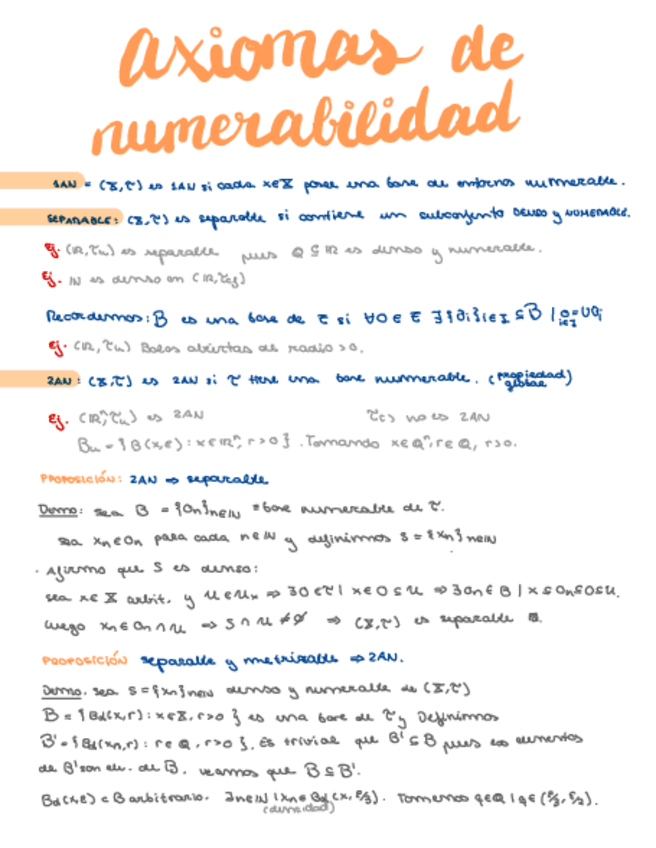 axiomas de
numerabilidad
1AN = (X,τ) es 1AN si cada x∈X posee una base de entornos numerable.
SEPARABLE: (X,τ) es separable si contiene un subconjunto DENSO y NUMERABLE.
Ej. (ℝ,τu) es separable pues ℚ⊆ℝ es denso y numerable.
Ej. ℕ es denso en (ℝ,τcf)
Recordemos: B es una base de τ si ∀O∈τ ∃{Oi}i∈I ⊆B | O=∪Oi i∈I
Ej. (ℝ,τu) Bolas abiertas de radio >0.
2AN: (X,τ) es 2AN si τ tiene una base numerable. (propiedad global)
Ej. (ℝⁿ,τu) es 2AN no es 2AN
Bu = {B(x,ε): x∈ℝⁿ, r>0}. Tomando x∈ℚⁿ, r∈ℚ, r>0.
PROPOSICIÓN: 2AN ⇒ separable
Demo: sea B = {On}n∈ℕ =base numerable de τ.
sea xn∈On para cada n∈ℕ y definimos S={xn}n∈ℕ
. Afirmo que S es denso:
sea x∈X arbit. y U∈Ux ⇒ ∃O∈τ | x∈O⊆U ⇒ ∃On∈B | x⊆On⊆O⊆U.
Luego xn∈On∩U ⇒ S∩U≠∅ ⇒ (X,τ) es separable ■.
PROPOSICIÓN separable y metrizable ⇒ 2AN.
Demo. sea S={xn}n∈ℕ denso y numerable de (X,τ)
B = {Bd(x,r): x∈X, r>0} es una base de τ y Definimos
B'={Bd(xn,r): r∈ℚ, r>0}. Es trivial que B'⊆B pues los elementos
de B' son ele. de B. veamos que B⊆B'.
Bd(x,ε)⊂B arbitrario. ∃n∈ℕ | xn∈Bd(x,ε/3). Tomemos q∈ℚ | q∈(ε/3,ε/2).
(densidad)